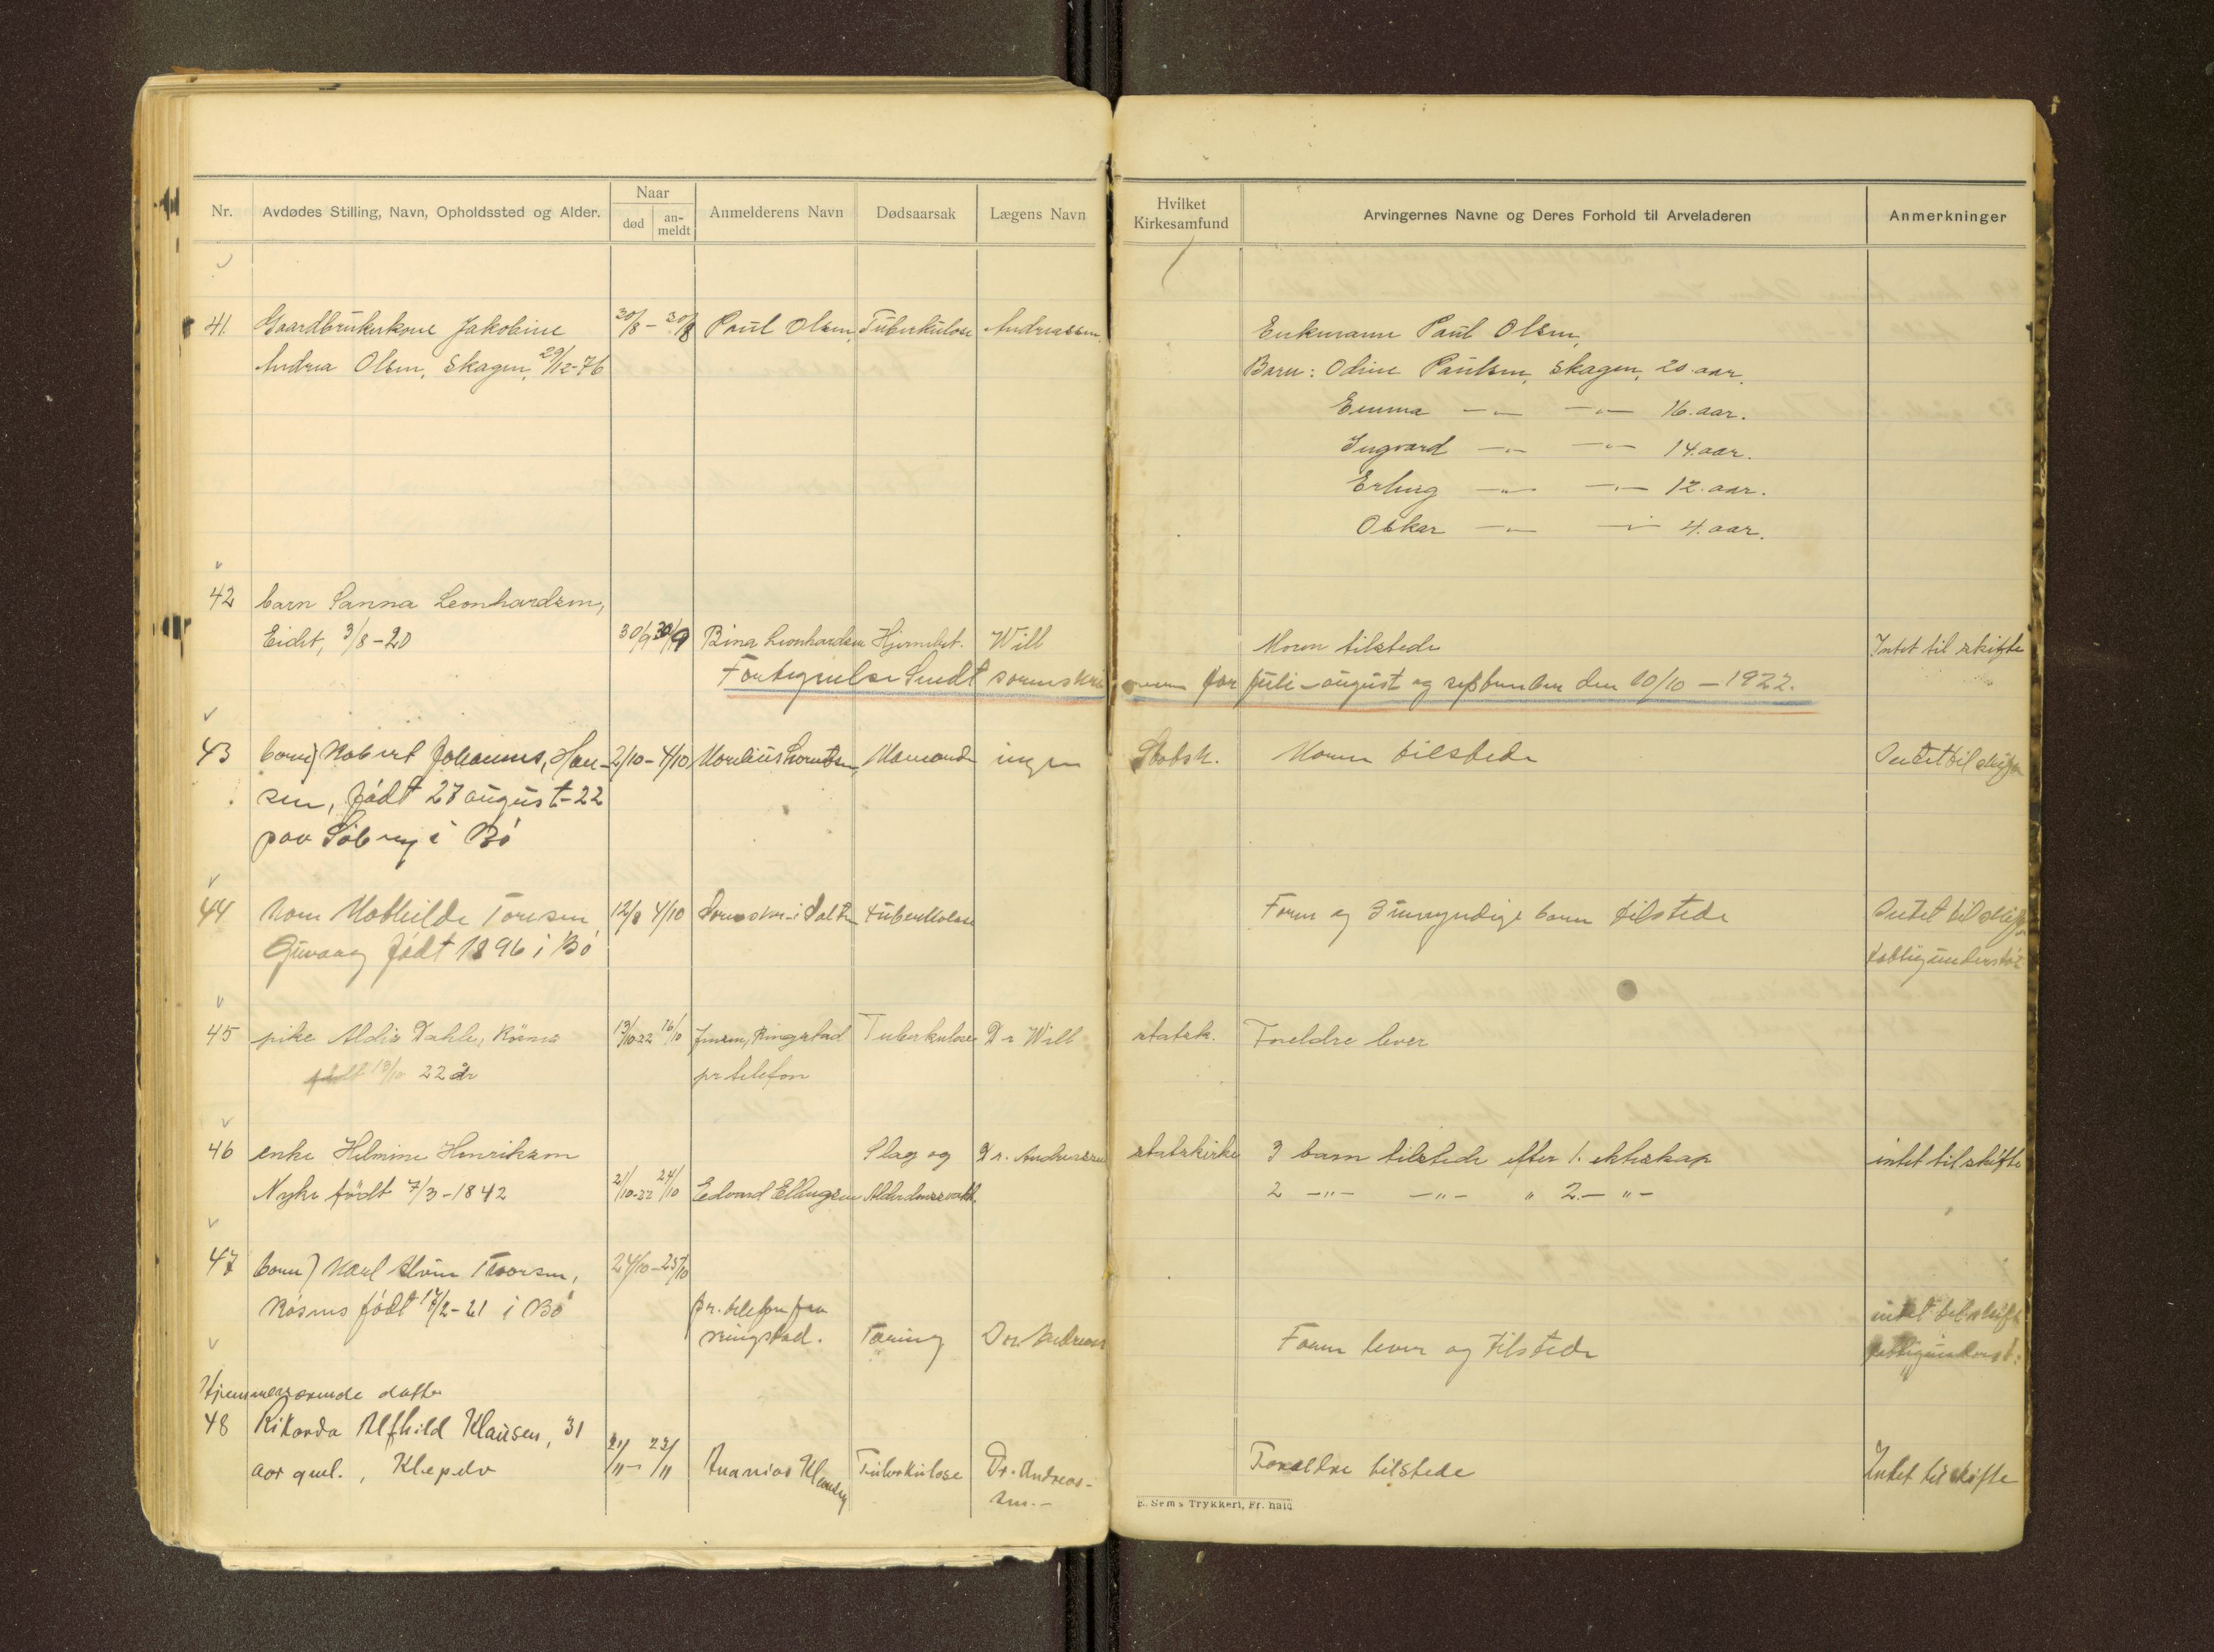 Nr.
Avdødes Stilling, Navn, Opholdssted og Alder.
Naar
død
an-
meldt
Anmelderens Navn
Dødsaarsak
Lægens Navn
Hvilket
Kirkesamfund
Arvingernes Navne og Deres Forhold til Arveladeren
Anmerkninger
41. Gaardbrukerkone Jakobine 30/8 - 30/8 Paul Olsen, Tuberkulose Andreassen. Enkemann Paul Olsen,
Andrea Olsen, Skagen, 29/12-76 Barn: Odine Paulsen, Skagen, 20 aar.
Emma -"- -"- 16. aar.
Ingvard -"- -"- 14. aar.
Erling -"- -"- 12. aar.
Oskar -"- -"- 4. aar.
42 barn Sanna Leonhardsen,
Eidet, 3/8-20 30/9 30/9 Bina Leonhardsen Hjernebet. Will Moren tilstede Intet til skifte
Fortegnelse Sendt sorenskriveren for juli-august og september den 10/10 - 1922.
43 barn) Robert Johannes, Han- 2/10 - 4/10 ingen Statsk. Moren tilstede Intet til skifte
sen, født 27 august-22
paa i Bø
44 Kone Mathilde Toresen 12/8 4/10 Sorenskr. i Salten tuberkulose Faren og 3 umyndige barn tilstede Intet til skifte
født 1896 i Bø fattigunderstøt
45 pike Aldis Dahle, Røsnes 13/10-22 16/10 Jensen, Ringstad Tuberkulose Dr Will statsk. Foreldre lever
født 13/10 22 år pr telefon
46 enke Helmine Henriksen Slag og Dr. Andreassen statskirke 3 barn tilstede efter 1. ekteskap intet til skifte
Nyke født 7/3-1842 21/10-22 24/10 Edvard Ellingsen Alderdomssvakh. 2 -"- -"- " 2.- "-
47 barn) Karl Alvin Toresen, 24/10 - 25/10
Røsnes født 17/2-21 i Bø pr. telefon fra intet til skifte
ringstad. Tæring Dr. Andreass Faren lever og tilstede fattigunderst.
Hjemmeværende datter
48 Rikarda Alfhild Klausen, 31
aar gml., Klepelv 21/11 - 23/11 Ananias Klausen Tuberkulose Dr. Andreas- Foreldre tilstede Intet til skifte
sen.-
E. Sem's Trykkeri, Fr. hald